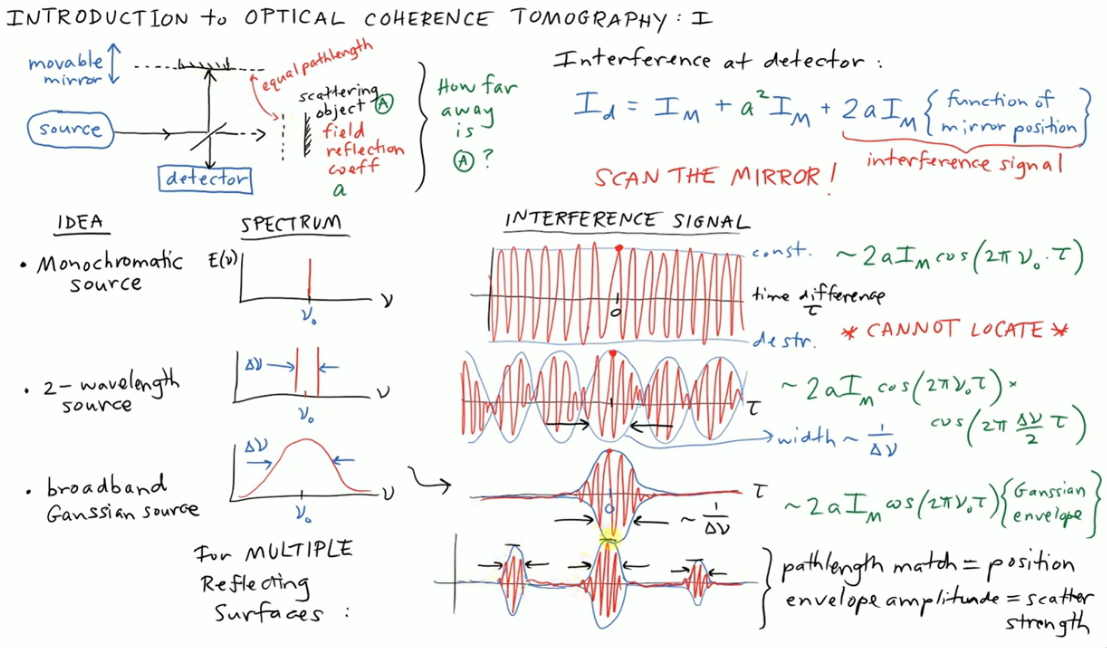 INTRODUCTION to OPTICAL COHERENCE TOMOGRAPHY: I
movable
mirror
equal pathlength
source
detector
scattering
object Ⓐ
field
reflection
coeff
a
How far
away
is
Ⓐ?
Interference at detector:
I_d = I_M + a² I_M + 2a I_M { function of
mirror position }
interference signal
SCAN THE MIRROR!
IDEA
SPECTRUM
INTERFERENCE SIGNAL
• Monochromatic
source
E(ν)
ν
ν₀
const.
~ 2a I_M cos(2π ν₀ · τ)
time difference
τ
0
* CANNOT LOCATE *
destr.
• 2-wavelength
source
Δν
ν
ν₀
τ
~ 2a I_M cos(2πν₀τ) ×
cos(2π Δν/2 τ)
width ~ 1/Δν
• broadband
Gaussian source
Δν
ν
ν₀
0
τ
~ 1/Δν
~ 2a I_M cos(2πν₀τ) { Gaussian
envelope }
For MULTIPLE
Reflecting
Surfaces:
pathlength match = position
envelope amplitude = scatter
strength